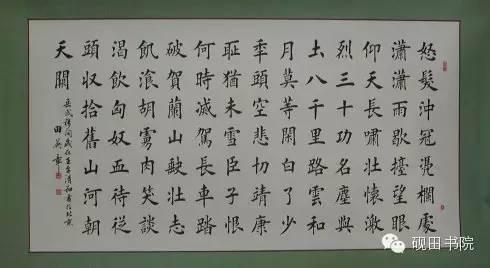 怒髮沖冠凴欄處
瀟瀟雨歇擡望眼
仰天長嘯壯懷激
烈三十功名塵與
土八千里路雲和
月莫等閑白了少
秊頭空悲切靖康
恥猶未雪臣子恨
何時滅駕長車踏
破賀蘭山缺壯志
飢湌胡虜肉笑談
渴飲匈奴血待從
頭收拾舊山河朝
天闕
岳武穆詞歲在壬辰清和書於北京
田英章
砚田书院